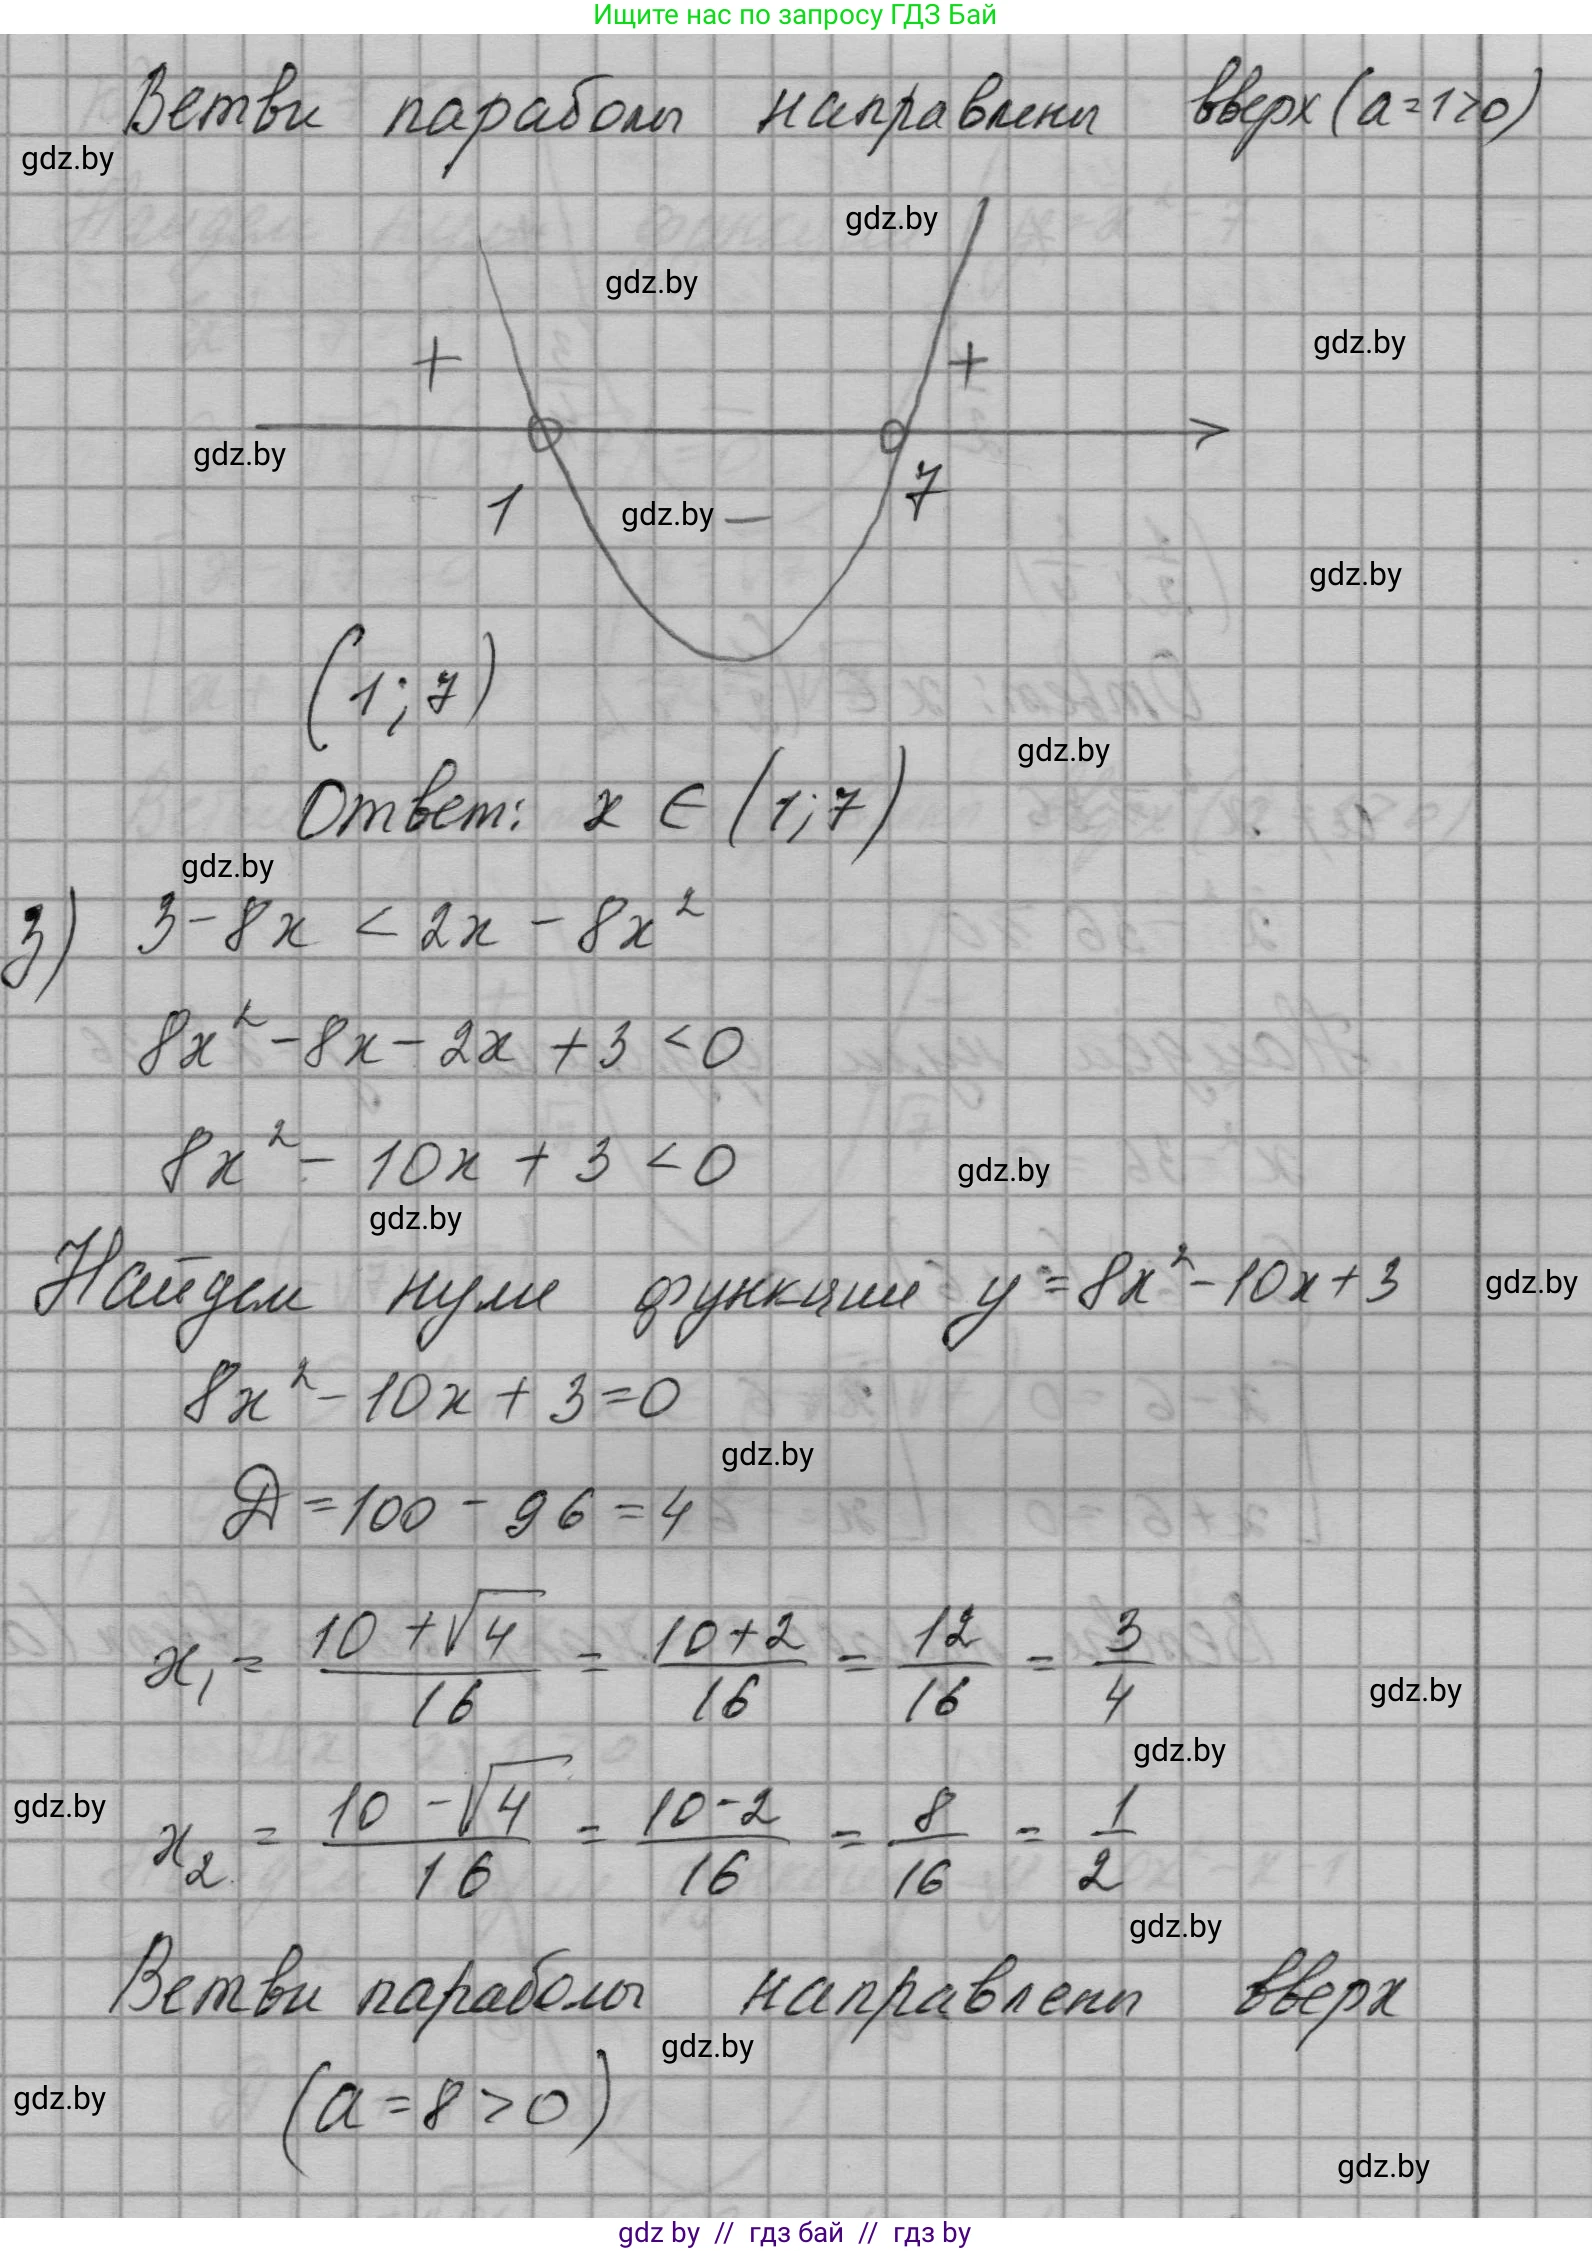 Ищите нас по запросу ГДЗ Бай
Ветви параболы направлены вверх (a=1>0)
gdz.by
gdz.by
gdz.by
+ + gdz.by
gdz.by
1 gdz.by − 7
gdz.by
(1;7)
gdz.by
Ответ: x ∈ (1;7)
gdz.by
3) 3-8x < 2x - 8x²
8x² - 8x - 2x + 3 < 0
8x² - 10x + 3 < 0
gdz.by
gdz.by
Найдем нули функции y = 8x² - 10x + 3 gdz.by
8x² - 10x + 3 = 0
gdz.by
Д = 100 - 96 = 4
x₁ = (10 + √4)/16 = (10+2)/16 = 12/16 = 3/4
gdz.by
gdz.by
gdz.by
x₂ = (10 - √4)/16 = (10-2)/16 = 8/16 = 1/2
gdz.by
Ветви параболы направлены вверх
gdz.by
gdz.by (a = 8 > 0)
gdz.by
gdz by // гдз бай // гдз by